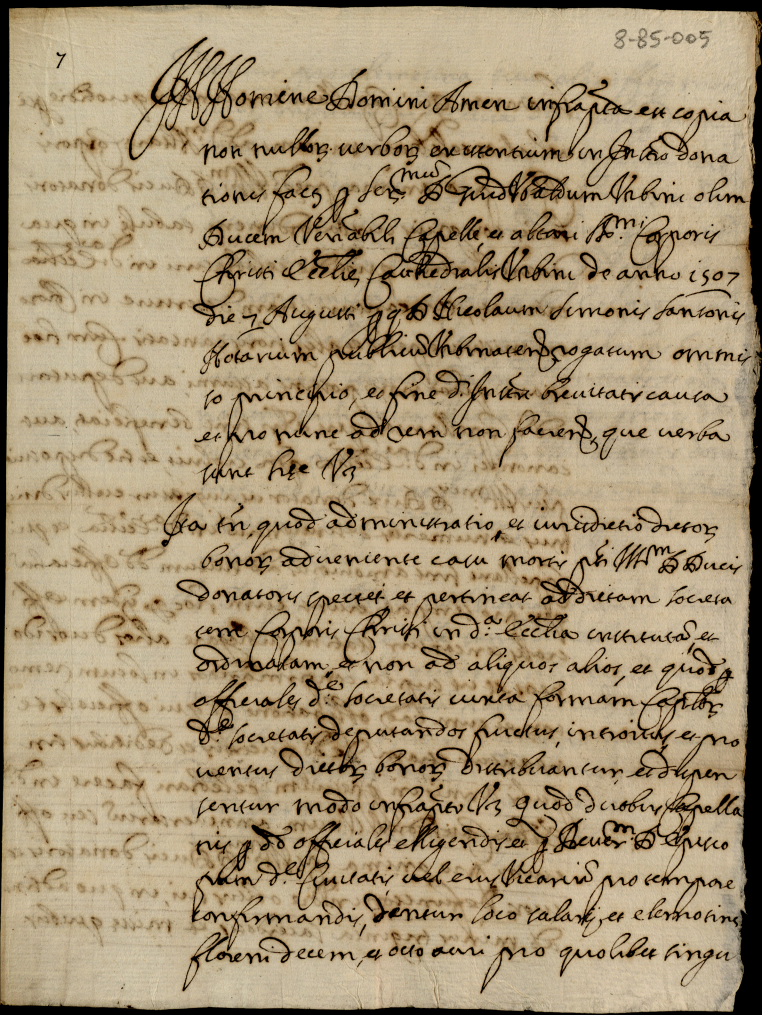 7
8-85-005
In Nomine Domini Amen infrapta est copia
non nullor. verbor. existentium in Instro dona
tionis fact. p Ser.mum D Guidubaldum Urbini olim
Ducem Venabili Capelle, et altari S.mi Corporis
Christi Ecclie Cathedralis Urbini de anno 1507
die 7 Augusti p q D Nicolaum Simonis Santonis
Notarium publicũ Urbinateñ rogatum omis
so principio, et fine d. Instri brevitatis causa
et pro nunc ad rem non facieñ, que verba
sunt hęc Vz
Ita tñ, quod administratio, et iurisdictio dictor.
bonor. adveniente casu mortis pti Ill.m D Ducis
donatoris spectet et pertineat ad dictam societa
tem Corporis Christi in d.a Ecclia institutã, et
ordinatam, et non ad aliquos alios, et quod p
officiales d.e societatis iuxta formam Caplor.
d.e societatis deputandos fructus, introitus, et pro
ventus dictor. bonor. distribuantur, et dispen
sentur modo infrapto Vz quod duobus Capella
nis p dd officiales elligendis, et p Rever.m D Episco
pum d.e Civitatis vel eius Vicariũ pro tempore
confirmandis, dentur loco salarij, et elemosine
floreni decem, et octo auri pro quolibet singu